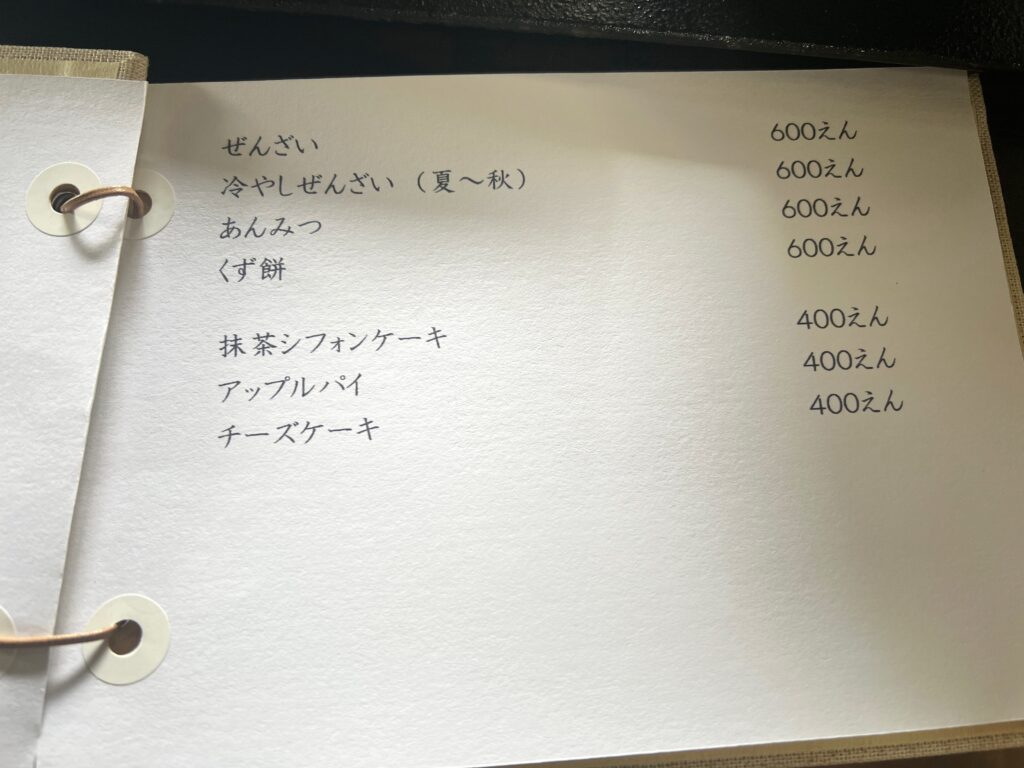 ぜんざい 600えん
冷やしぜんざい（夏～秋） 600えん
あんみつ 600えん
くず餅 600えん
抹茶シフォンケーキ 400えん
アップルパイ 400えん
チーズケーキ 400えん